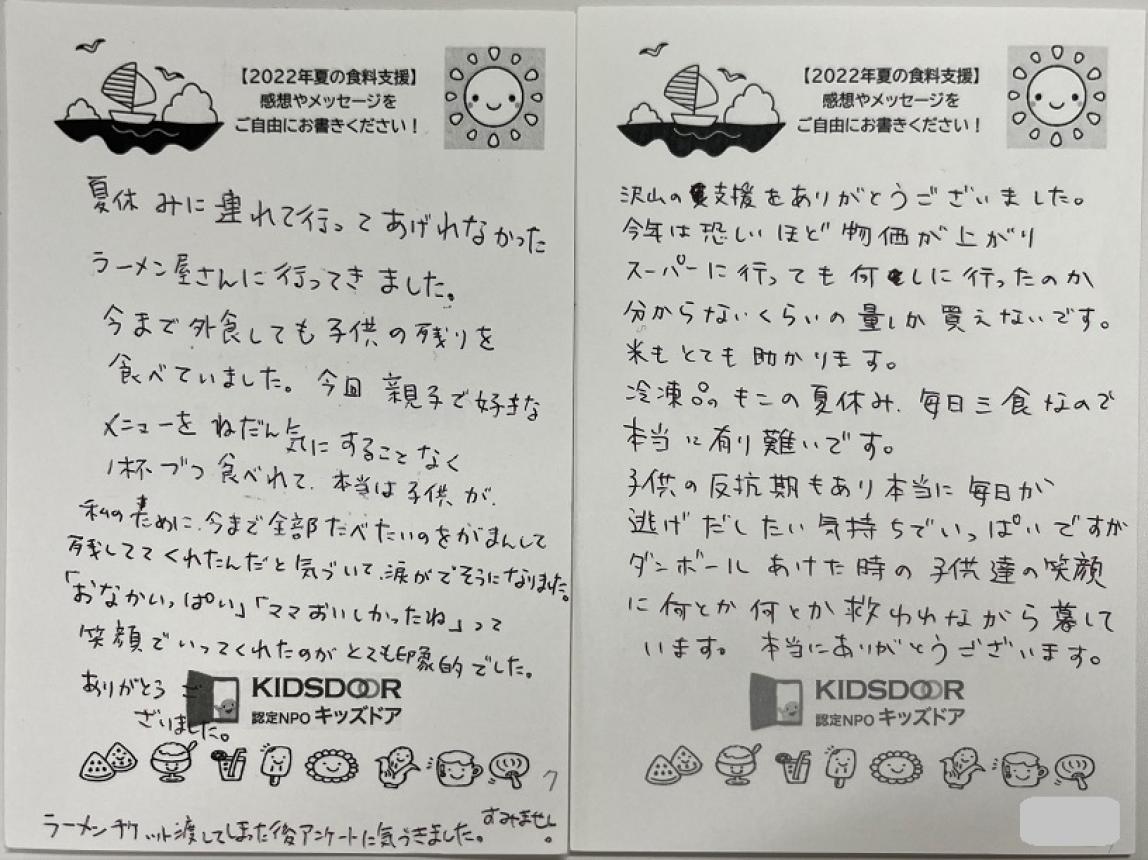 【2022年夏の食料支援】
感想やメッセージを
ご自由にお書きください！
夏休みに連れて行ってあげれなかった
ラーメン屋さんに行ってきました。
今まで外食しても子供の残りを
食べていました。今回親子で好きな
メニューをねだん気にすることなく
1杯づつ食べれて、本当は子供が、
私のために、今まで全部たべたいのをがまんして
残しててくれたんだと気づいて、涙がでそうになりました。
「おなかいっぱい」「ママおいしかったね」って
笑顔でいってくれたのがとても印象的でした。
ありがとうご
ざいました。
KIDSDOOR
認定NPO キッズドア
ラーメンチケット渡してしまった後アンケートに気づきました。すみません。
【2022年夏の食料支援】
感想やメッセージを
ご自由にお書きください！
沢山の支援をありがとうございました。
今年は恐しいほど物価が上がり
スーパーに行っても何しに行ったのか
分からないくらいの量しか買えないです。
米もとても助かります。
冷凍品のもこの夏休み、毎日三食なので
本当に有り難いです。
子供の反抗期もあり本当に毎日が
逃げだしたい気持ちでいっぱいですが
ダンボールあけた時の子供達の笑顔
に何とか何とか救われながら暮して
います。本当にありがとうございます。
KIDSDOOR
認定NPO キッズドア